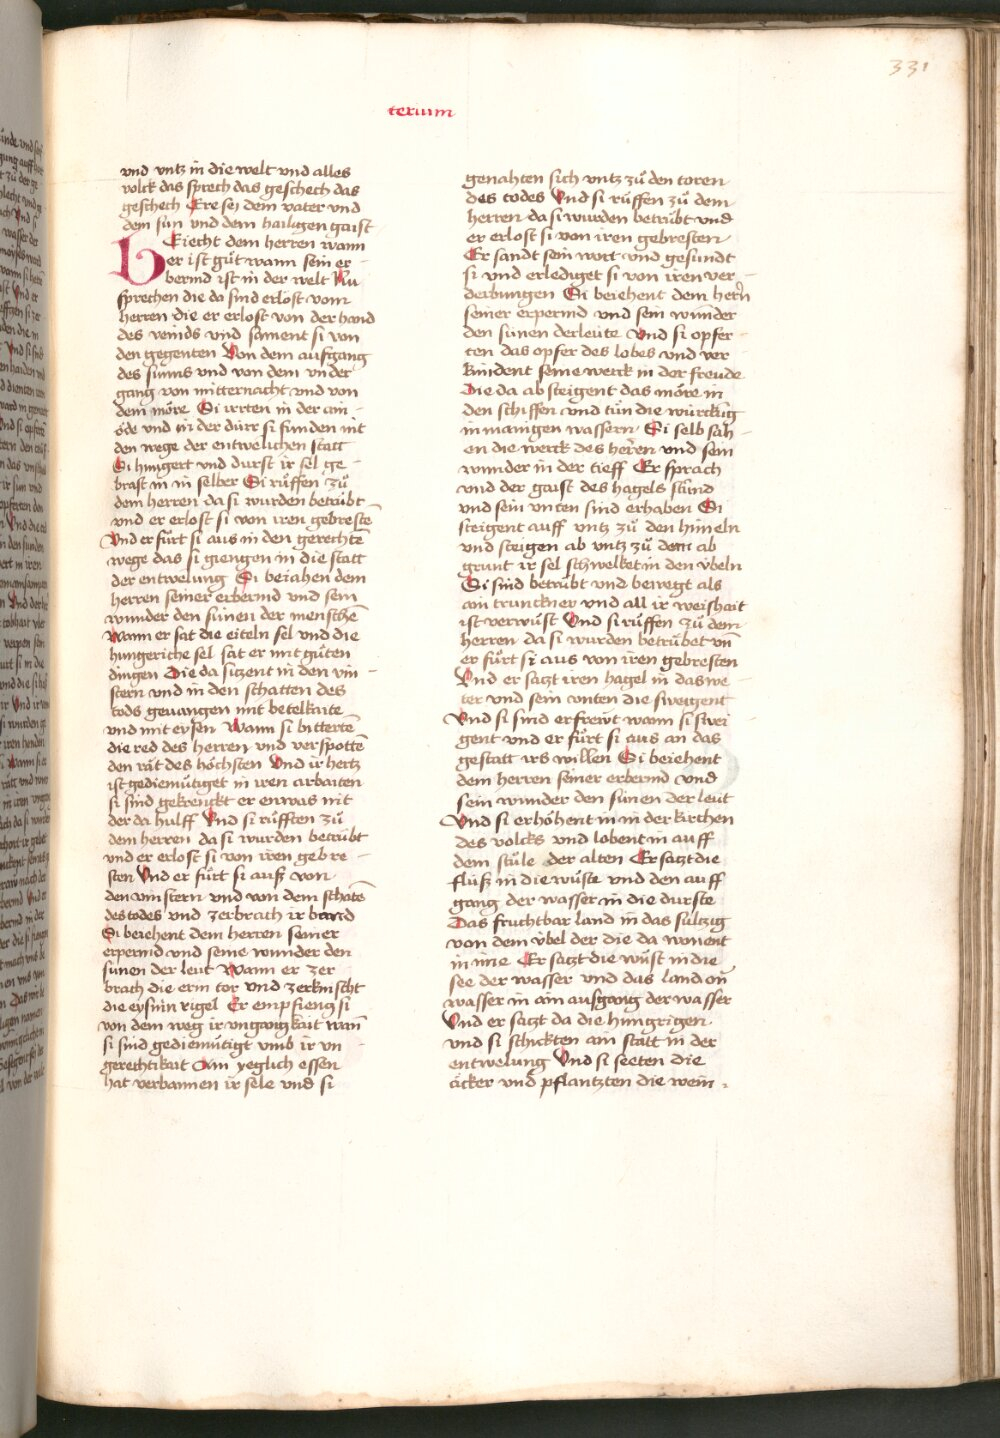 331
terium
vnd vntz in die welt vnd alles
volck das sprech das geschech das
geschech Ere sej dem vater vnd
dem sun vnd dem hailigen gaist
BEiecht dem herren wann
er ist gůt wann sein er-
bermd ist in der welt Nu
sprechen die da sind erlöst vom
herren die er erlost von der hand
des veinds vnd sament si von
den gegenten Von dem aufgang
des sunns vnd von dem vnder
gang von mitternacht vnd von
dem möre Si irrten in der ain-
öde vnd in der dürr si funden nit
den wege der entwelichen statt
Si hungert vnd durst ir sel ge-
brast in in selber Si růffen zů
dem herren da si wurden betrübt
vnd er erlost si von iren gebrestē
Vnd er fürt si aus in den gerechtē
wege das si giengen in die statt
der entwelung Si beiahen dem
herren seiner erbermd vnd sein
wunder den sünen der menschē
Wann er sat die eiteln sel vnd die
hungeriche sel sat er mit gůten
dingen Die da sitzent in den vin-
stern vnd in den schatten des
tods geuangen mit betelkaite
vnd mit eysen Wann si bittertē
die red des herren vnd verspottē
den rat des höchsten Vnd ir hertz
ist gediemütiget in iren arbaiten
si sind gekrenckt er enwas nit
der da hulff Vnd si růfften zů
dem herren da si wurden betrübt
vnd er erlost si von iren gebre-
sten Vnd er fürt si auß von
den vinstern vnd von dem schatē
des todes vnd zerbrach ir band
Si beiehent dem herren seiner
erpermd vnd seine wunder den
sunen der leut Wann er zer
brach die erin tor vnd zerknischt
die eysnin rigel Er empfieng si
von dem weg ir vngantzkait wañ
si sind gediemütigt vmb ir vn-
gerechtikait Ain yeglich essen
hat verbannen ir sele vnd si
genahten sich vntz zů den toren
des todes Vnd si růffen zů dem
herren da si wurden betrübt vnd
er erlost si von iren gebresten
Er sandt sein wort vnd gesundt
si vnd erlediget si von iren ver-
derbungen Si beiehent dem herrn
seiner erpermd vnd sein wunder
den sünen der leute Vnd si opfer-
ten das opfer des lobes vnd ver-
kündent seine werck in der freude
Die da absteigent das möre in
den schiffen vnd tůn die würckūg
in manigen wassern Si selb sah-
en die werck des herren vnd sein
wunder in der tieff Er sprach
vnd der gaist des hagels stůnd
vnd sein vnten sind erhaben Si
steigent auff vntz zů den himeln
vnd steigen ab vntz zů dem ab
grunt ir sel schwelket in den vbeln
Si sind betrübt vnd bewegt als
ain trunckner vnd all ir weishait
ist verwüst Vnd si růffen zů dem
herren da si wurden betrübet vñ
er fürt si aus von iren gebresten
Vnd er satzt iren hagel in das we-
ter vnd sein vnten die sweigent
Vnd si sind erfreivt wann si swei
gent vnd er fürt si aus an das
gestatt irs willen Si beiehent
dem herren seiner erbermd vnd
sein wunder den sünen der leut
Vnd si erhöhent in in der kirchen
des volcks vnd lobent in auff
dem stüle der alten Er satzt die
flüß in die wüste vnd den auff
gang der wasser in die durste
Das fruchtbar land in das sültzig
von dem vbel der die da wonent
in ime Er satzt die wüst in die
see der wasser vnd das land on
wasser in ain aufgang der wasser
Vnd er satzt da die hungrigen
vnd si schickten ain statt in der
entwelung Vnd si seeten die
äcker vnd pflantzten die wein-